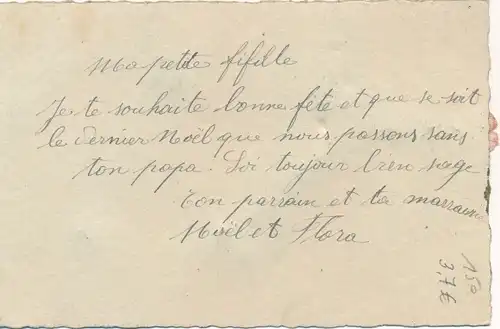 Ma petite fifille
Je te souhaite bonne fête et que se soit
le dernier Noël que nous passons sans
ton papa. Soi toujour bien sage
Ton parrain et ta marraine
Noël et Flora
150
3,7€